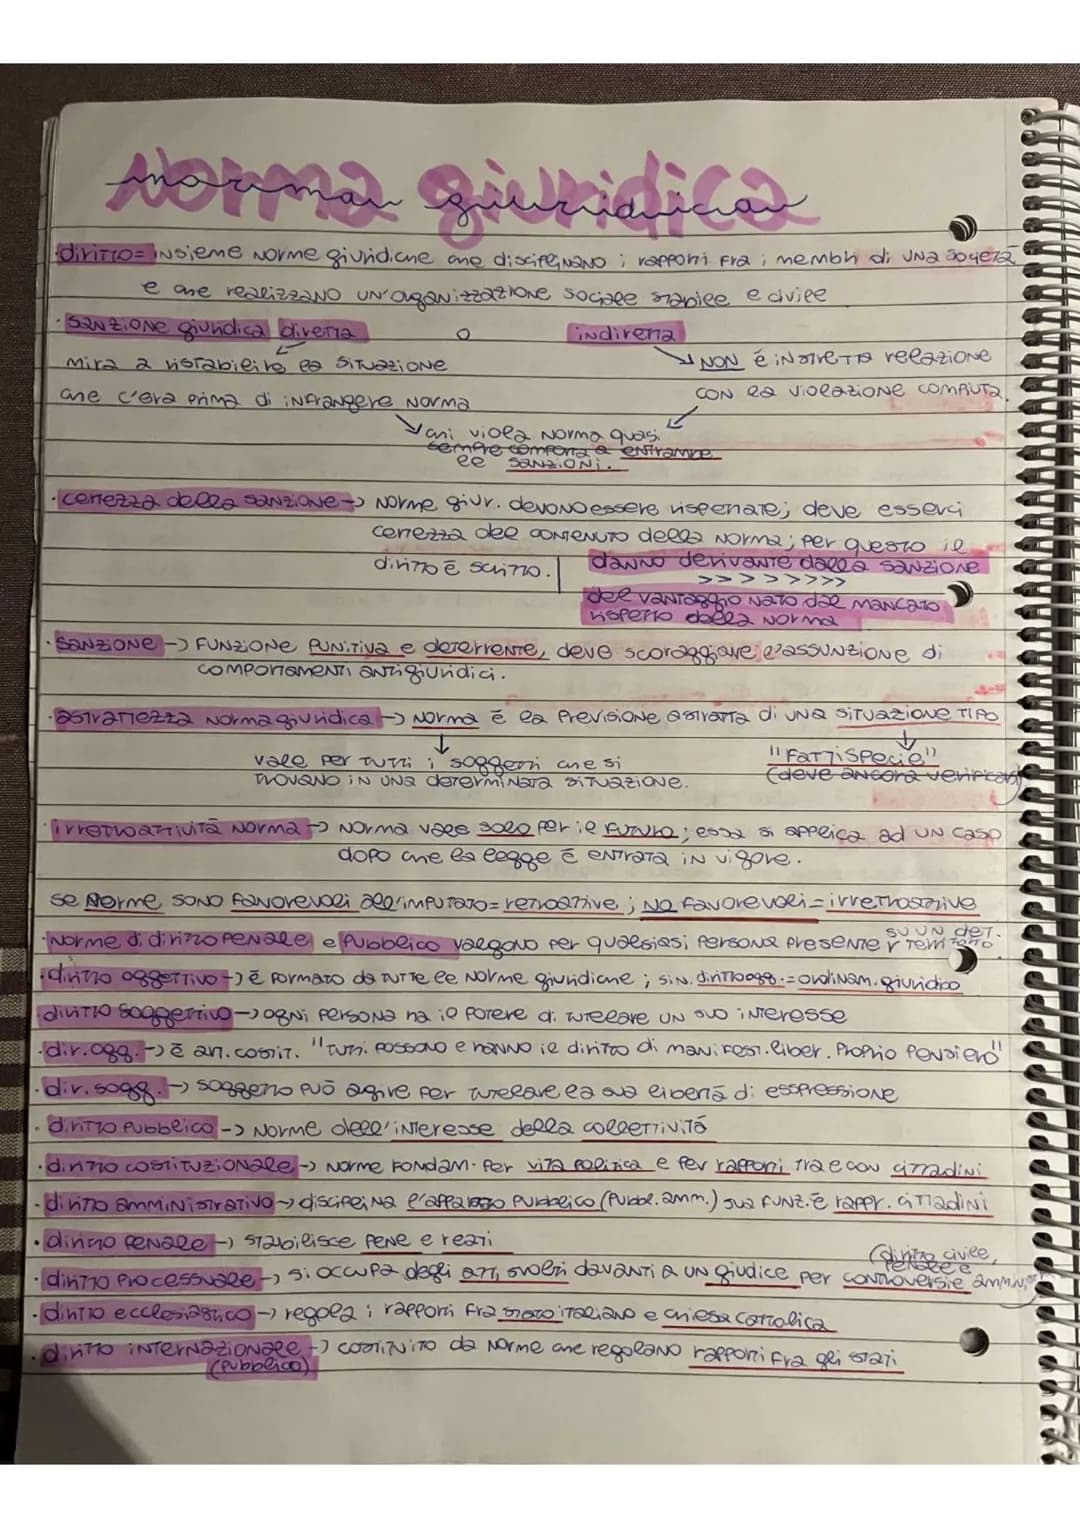 Norma giuridica
norma giuridica
·diritto= insieme norme giuridiche che disciplinano i rapporti fra i membri di una società
e che realizzano un'organizzazione sociale stabile e civile
·sanzione giuridica diretta o indiretta
mira a ristabilire la situazione
che c'era prima di infrangere norma
NON è in stretta relazione
con la violazione compiuta.
chi viola norma quasi
sempre comporta a entrambe
le sanzioni.
·certezza della sanzione -> norme giur. devono essere rispettate; deve esserci
certezza del contenuto della norma; per questo il
diritto è scritto.
danno derivante dalla sanzione
>> > > >>>>
del vantaggio nato dal mancato
rispetto della norma
·sanzione -> funzione punitiva e deterrente, deve scoraggiare l'assunzione di
comportamenti antigiuridici.
·astrattezza norma giuridica -> norma è la previsione astratta di una situazione tipo
vale per tutti i soggetti che si
trovano in una determinata situazione.
"fattispecie"
(deve ancora verificarsi)
·irretroattività norma -> norma vale solo per il futuro; essa si applica ad un caso
dopo che la legge è entrata in vigore.
se norme sono favorevoli all'imputato= retroattive; no favorevoli= irretroattive
·norme di diritto penale e pubblico valgono per qualsiasi persona presente su un det. territorio
·diritto oggettivo -> è formato da tutte le norme giuridiche; sin. diritto ogg.= ordinam. giuridico
diritto soggettivo -> ogni persona ha il potere di tutelare un suo interesse
·dir. ogg. -> è art. costit. "tutti possono e hanno il diritto di manifest. liber. proprio pensiero"
·dir. sogg. -> soggetto può agire per tutelare la sua libertà di esspressione
·diritto pubblico -> norme dell'interesse della collettività
·diritto costituzionale -> norme fondam. per vita politica e per rapporti tra e con cittadini
·diritto amministrativo -> disciplina l'apparato pubblico (pubbl. amm.) sua funz. è rappr. cittadini
·diritto penale -> stabilisce pene e reati
·diritto processuale -> si occupa degli atti svolti davanti a un giudice per controversie (diritto civile, penale e amminist.
·diritto ecclesiastico -> regola i rapporti fra stato italiano e chiesa cattolica
·diritto internazionale -> costituito da norme che regolano rapporti fra gli stati
(pubblico)